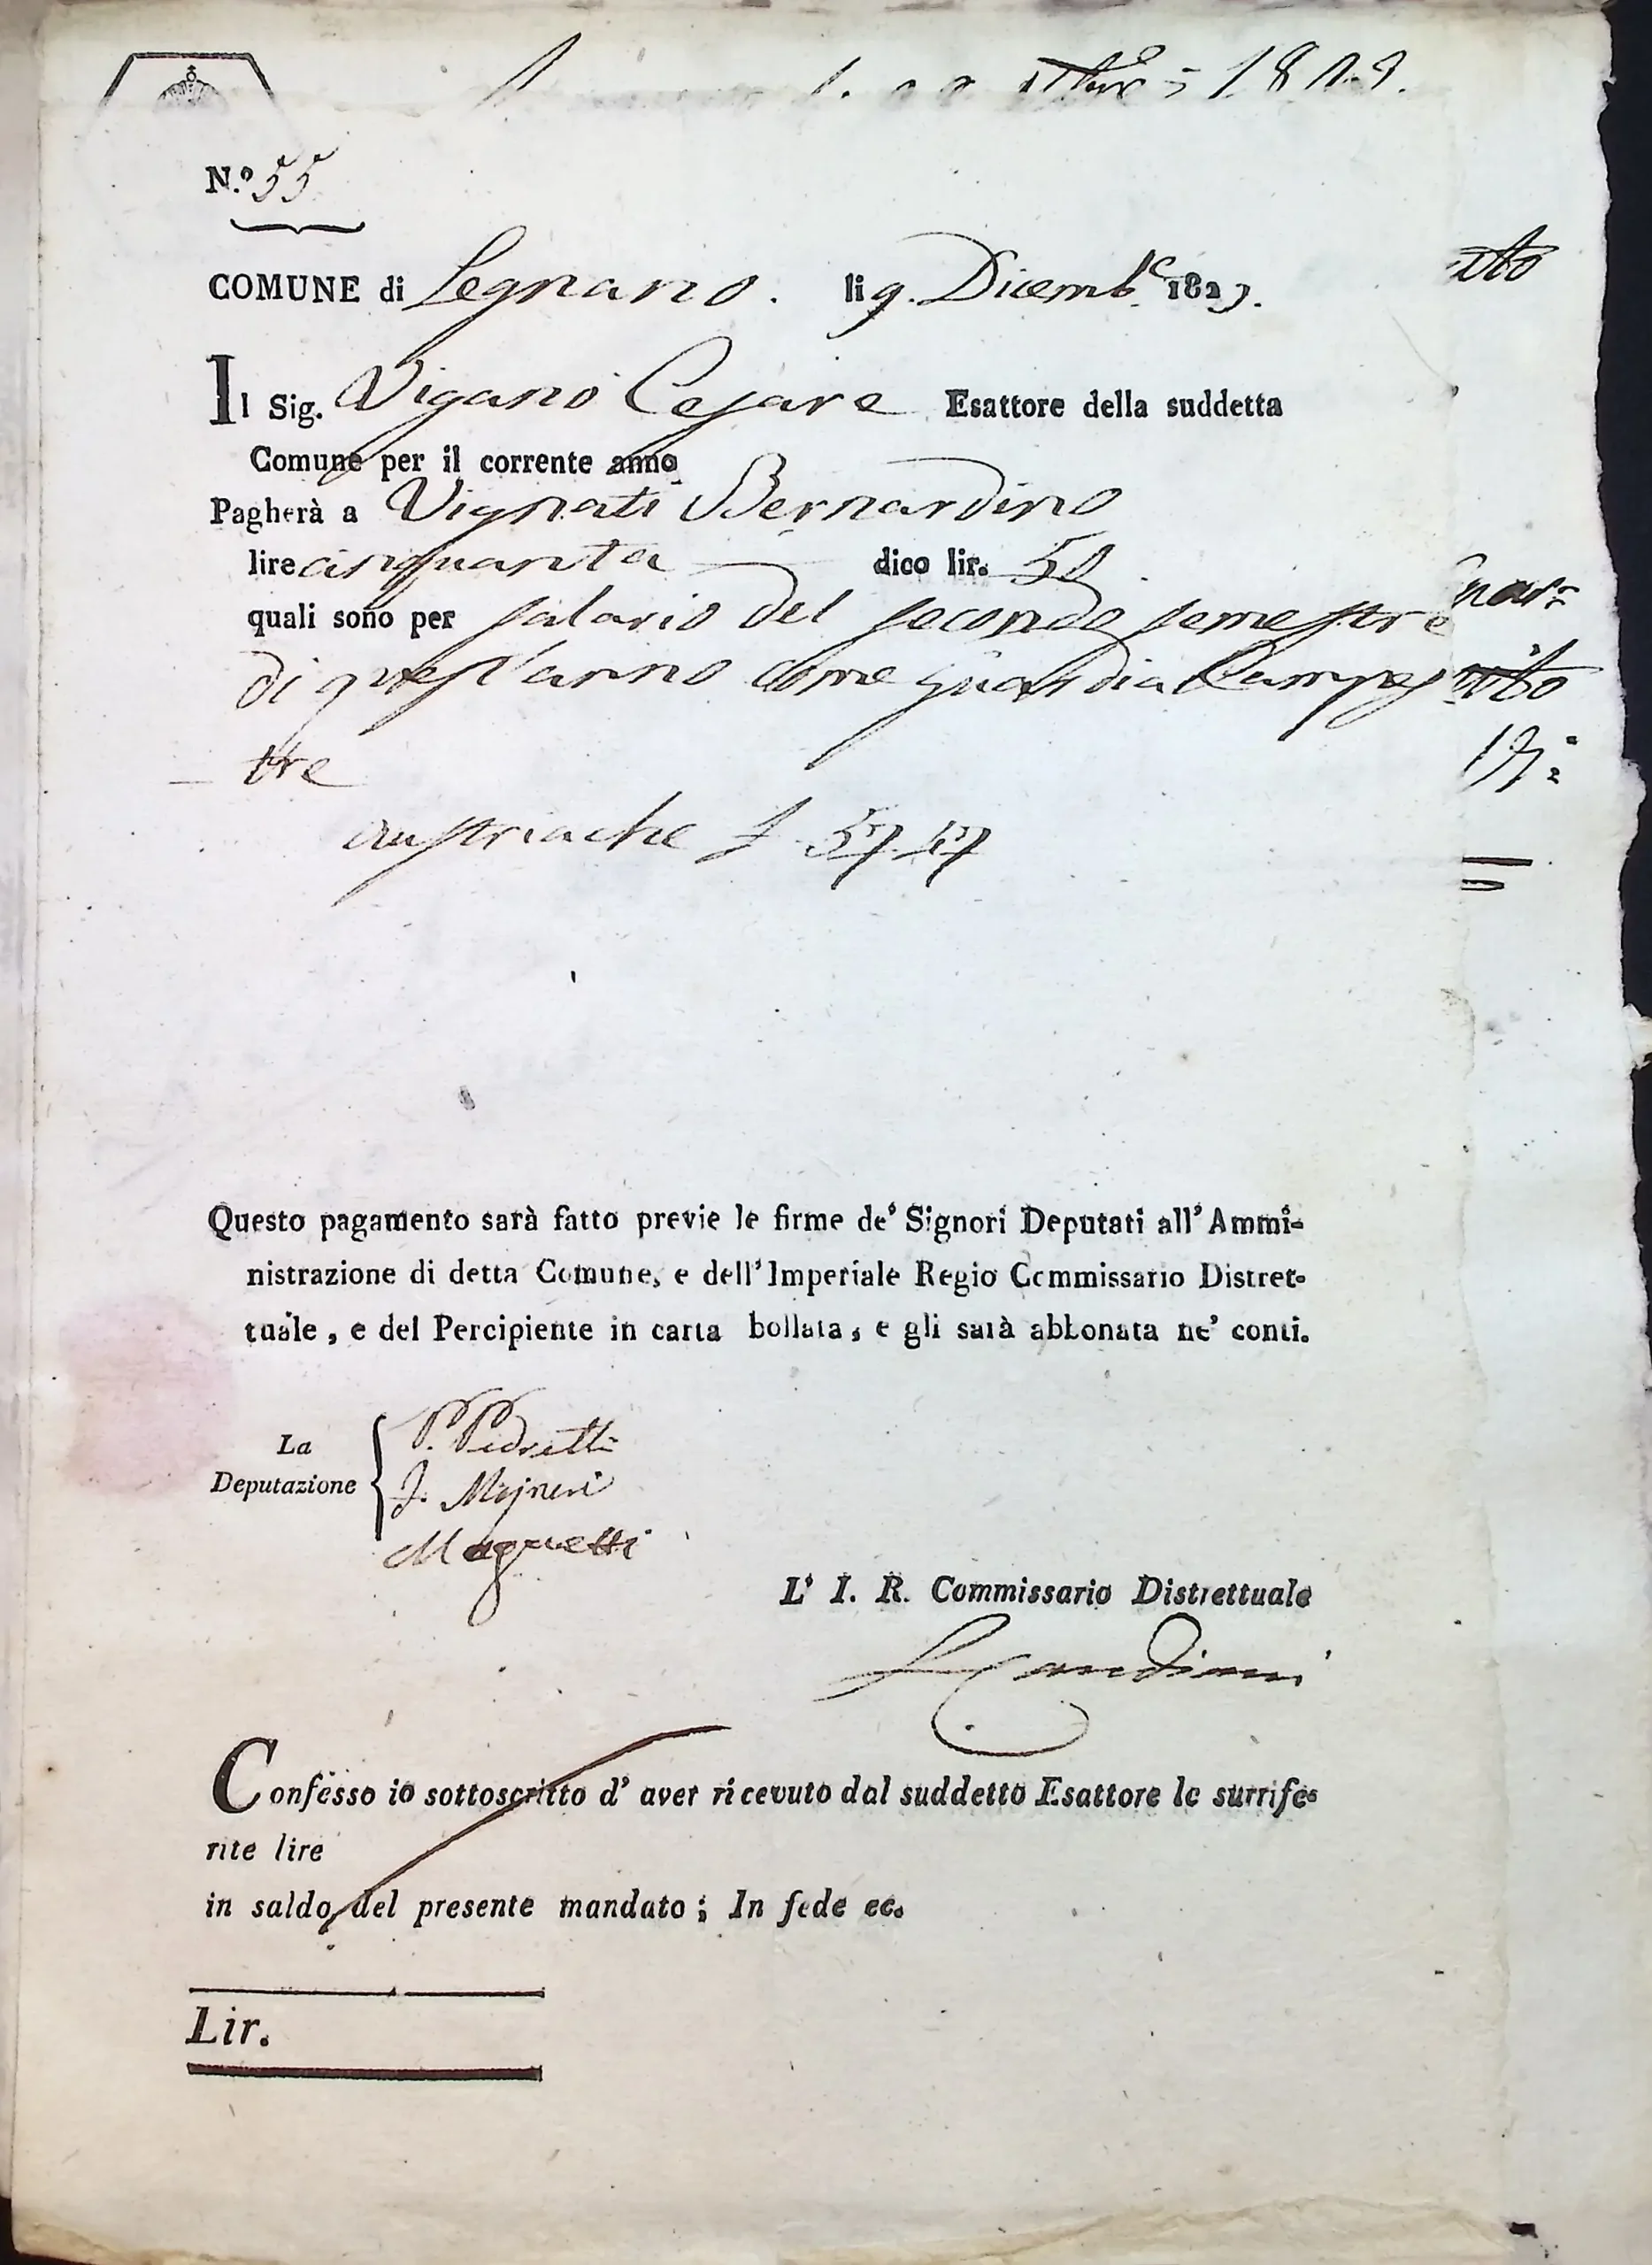 N.º 55
COMUNE di Legnano. li 9. Dicembᵉ 1823.
Il Sig. Viganò Cesare Esattore della suddetta
Comune per il corrente anno
Pagherà a Vignati Bernardino
lire cinquanta dico lir. 50
quali sono per salario del secondo semestre
di quest'anno come guardia Campes
tre
austriache £ 57.47
Questo pagamento sarà fatto previe le firme de' Signori Deputati all'Ammi-
nistrazione di detta Comune, e dell'Imperiale Regio Commissario Distret-
tuale, e del Percipiente in carta bollata, e gli sarà abbonata ne' conti.
La
Deputazione
P. Pedretti
Magnetti
L' I. R. Commissario Distrettuale
Confesso io sottoscritto d' aver ricevuto dal suddetto Esattore le surrife-
rite lire
in saldo del presente mandato; In fede ec.
Lir.